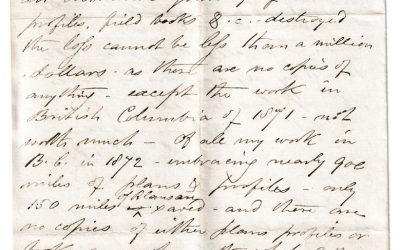 profiles, field books &.c. destroyed
the loss cannot be less than a million
dollars. as there are no copies of
anything - except the work in
British Columbia of 1871 - not
worth much - Of all my work in
B.C. in 1872 - embracing nearly 900
miles of plans & profiles - only
of plans are
150 miles saved - and there are
no copies of either plans profiles or